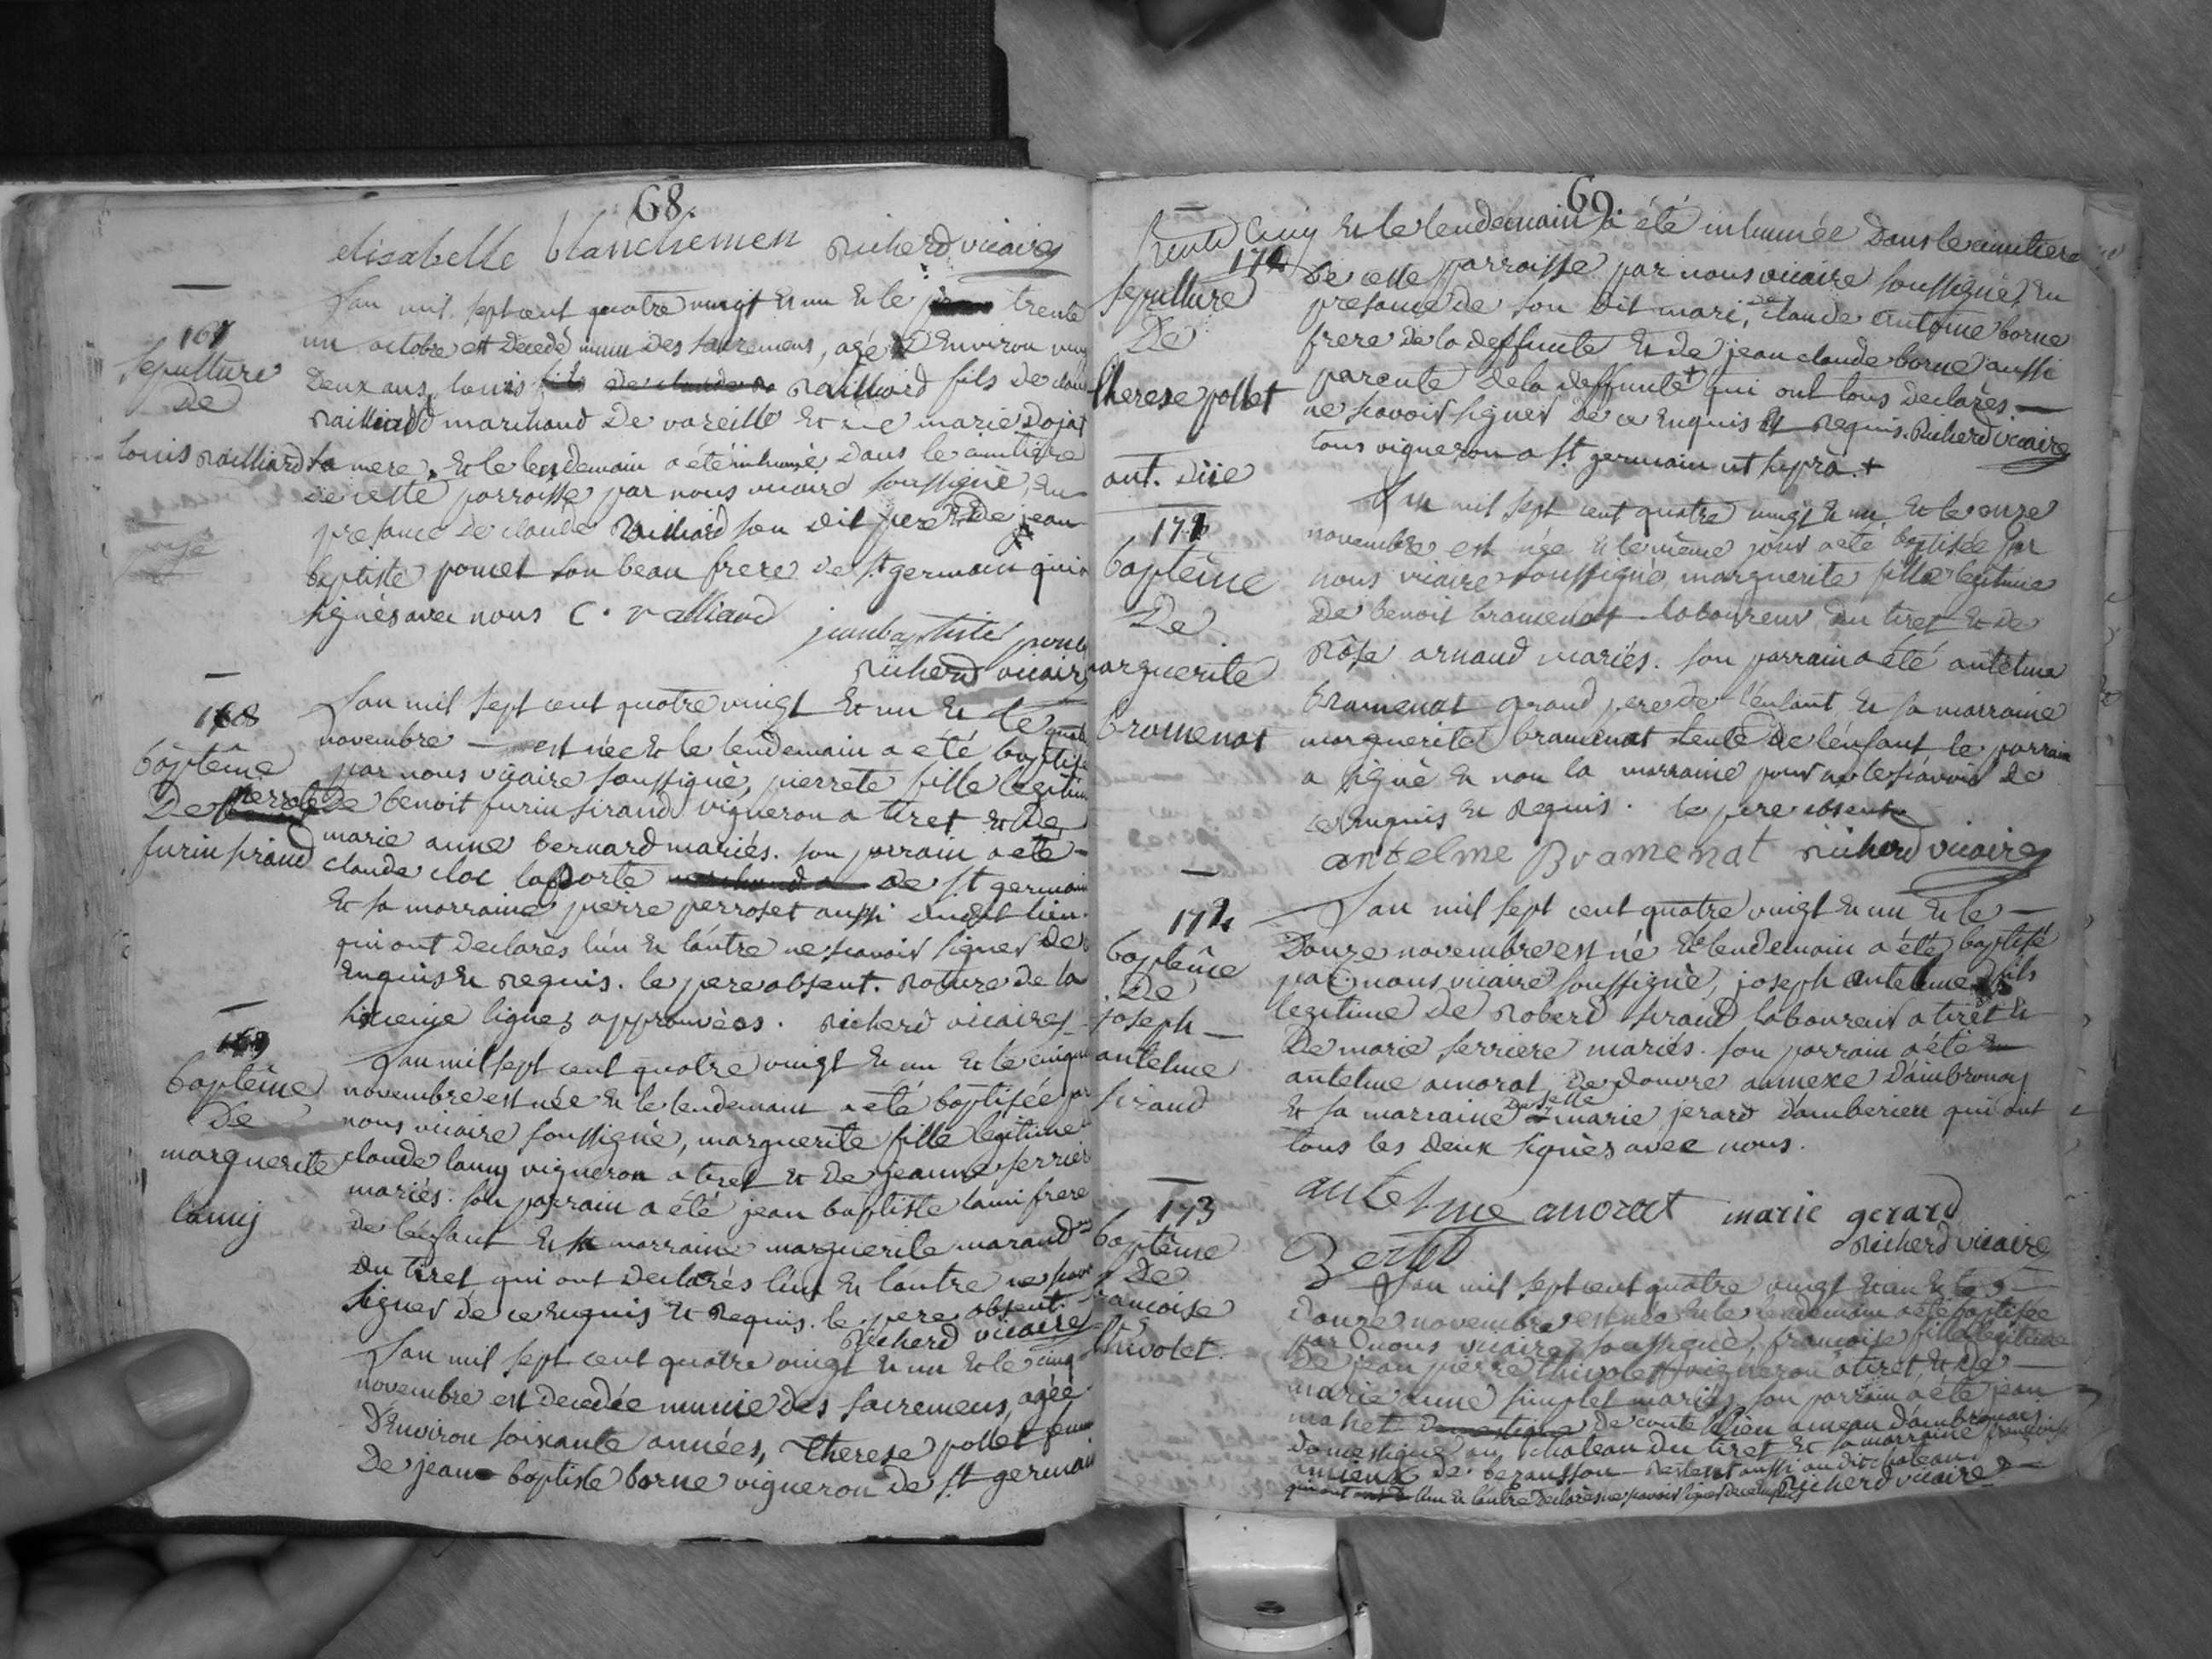 68.
elisabelle blanchemen Richerd vicaire
167
Sepulture
De
Louis Railliard
L'an mil sept cent quatre vingt et un et le trente
un octobre est decedé muni des sacremens, agé D'environ
Deux ans, Louis fils Railliard fils de
Railliard marchand De vareille et marie Dojat
sa mere, et le lendemain a été inhumé Dans le cimitiere
de cette parroisse par nous vicaire soussigné, en
presance de claude Railliard son dit pere et De jean
baptiste poncet son beau frere de st germain qui
signès avec nous C. ralliard
jeanbaptiste
Richerd vicaire
168
baptême
De perrete
furin sirand
L'an mil sept cent quatre vingt et un et le
novembre — est née et le lendemain a été baptisé
par nous vicaire soussigné, pierrete fille legitime
De benoit furin sirand vigneron a tiret et De
marie anne bernard mariés. son parrain a été
claude cloc laporte de st germain
et sa marraine pierre perroset aussi dudit lieu.
qui ont declarès l'un et l'autre ne scavoir signer de
enquis et requis. le pere absent. Rature de la
ligne approuvées. Richerd vicaire
169
baptême
De
marguerite
lamy
L'an mil sept cent quatre vingt et un et le cinq
novembre est née et le lendemain a été baptisée par
nous vicaire soussigné, marguerite fille legitime
claude lamy vigneron a tiret et De jeanne ferriere
mariés. son parrain a été jean baptiste lami frere
De l'enfant et sa marraine marguerite marand
du tiret qui ont declarés l'un et l'autre ne scavoir
signer de ce enquis et requis. le pere absent.
Richerd vicaire
L'an mil sept cent quatre vingt et un et le cinq
novembre est decedée munie des sacremens, agée
D'environ soixante années, therese pollet femme
De jean baptiste borne vigneron de st germain
69.
et le lendemain a été inhumée Dans le cimitiere
170
Sepulture
De
therese pollet
De cette parroisse par nous vicaire soussigné, en
presance de son dit mari, de claude antoine borne
frere de la deffunte et de jean claude borne aussi
parente de la deffunte + qui ont tous declarès —
ne scavoir signer de ce enquis et requis. Richerd vicaire
tous vigneron a st germain ut supra. +
171
baptême
De
marguerite
bramenat
L'an mil sept cent quatre vingt et un, et le onze
novembre est née et le même jour a été baptisée par
nous vicaire soussigné, marguerite fille legitime
De benoit bramenat laboureur du tiret et de
Rose arnaud mariés. son parrain a été antelme
bramenat grand pere de l'enfant, et sa marraine
marguerite bramenat tente de l'enfant le parrain
a signé et non la marraine pour ne le scavoir de
ce enquis et requis. le pere absent
antelme Bramenat Richerd vicaire
172
baptême
De
joseph —
antelme
sirand
L'an mil sept cent quatre vingt et un et le —
Douze novembre est né et lendemain a été baptisé
par nous vicaire soussigné, joseph antelme fils
legitime De Roberd sirand laboureur a tiret et
De marie ferriere mariés. son parrain a été
antelme amorat De Douvre annexe D'ambronay
et sa marraine Delle marie jerard D'amberieu qui ont
tous les Deux signès avec nous.
antelme amorat marie gerard
Richerd vicaire
173
baptême
De
francoise
thivolet
L'an mil sept cent quatre vingt et un et le
Douze novembre est née et le lendemain a été baptisée
par nous vicaire soussigné, francoise fille legitime
De jean pierre thivolet vigneron a tiret, et De —
marie anne simplet mariés, son parrain a été jean
De d'ambronai
Domestique au chateau Du tiret et sa marraine francoise
De besansson Restent aussi au dit chateau
qui ont l'un et l'autre Declarès ne scavoir signer Richerd vicaire